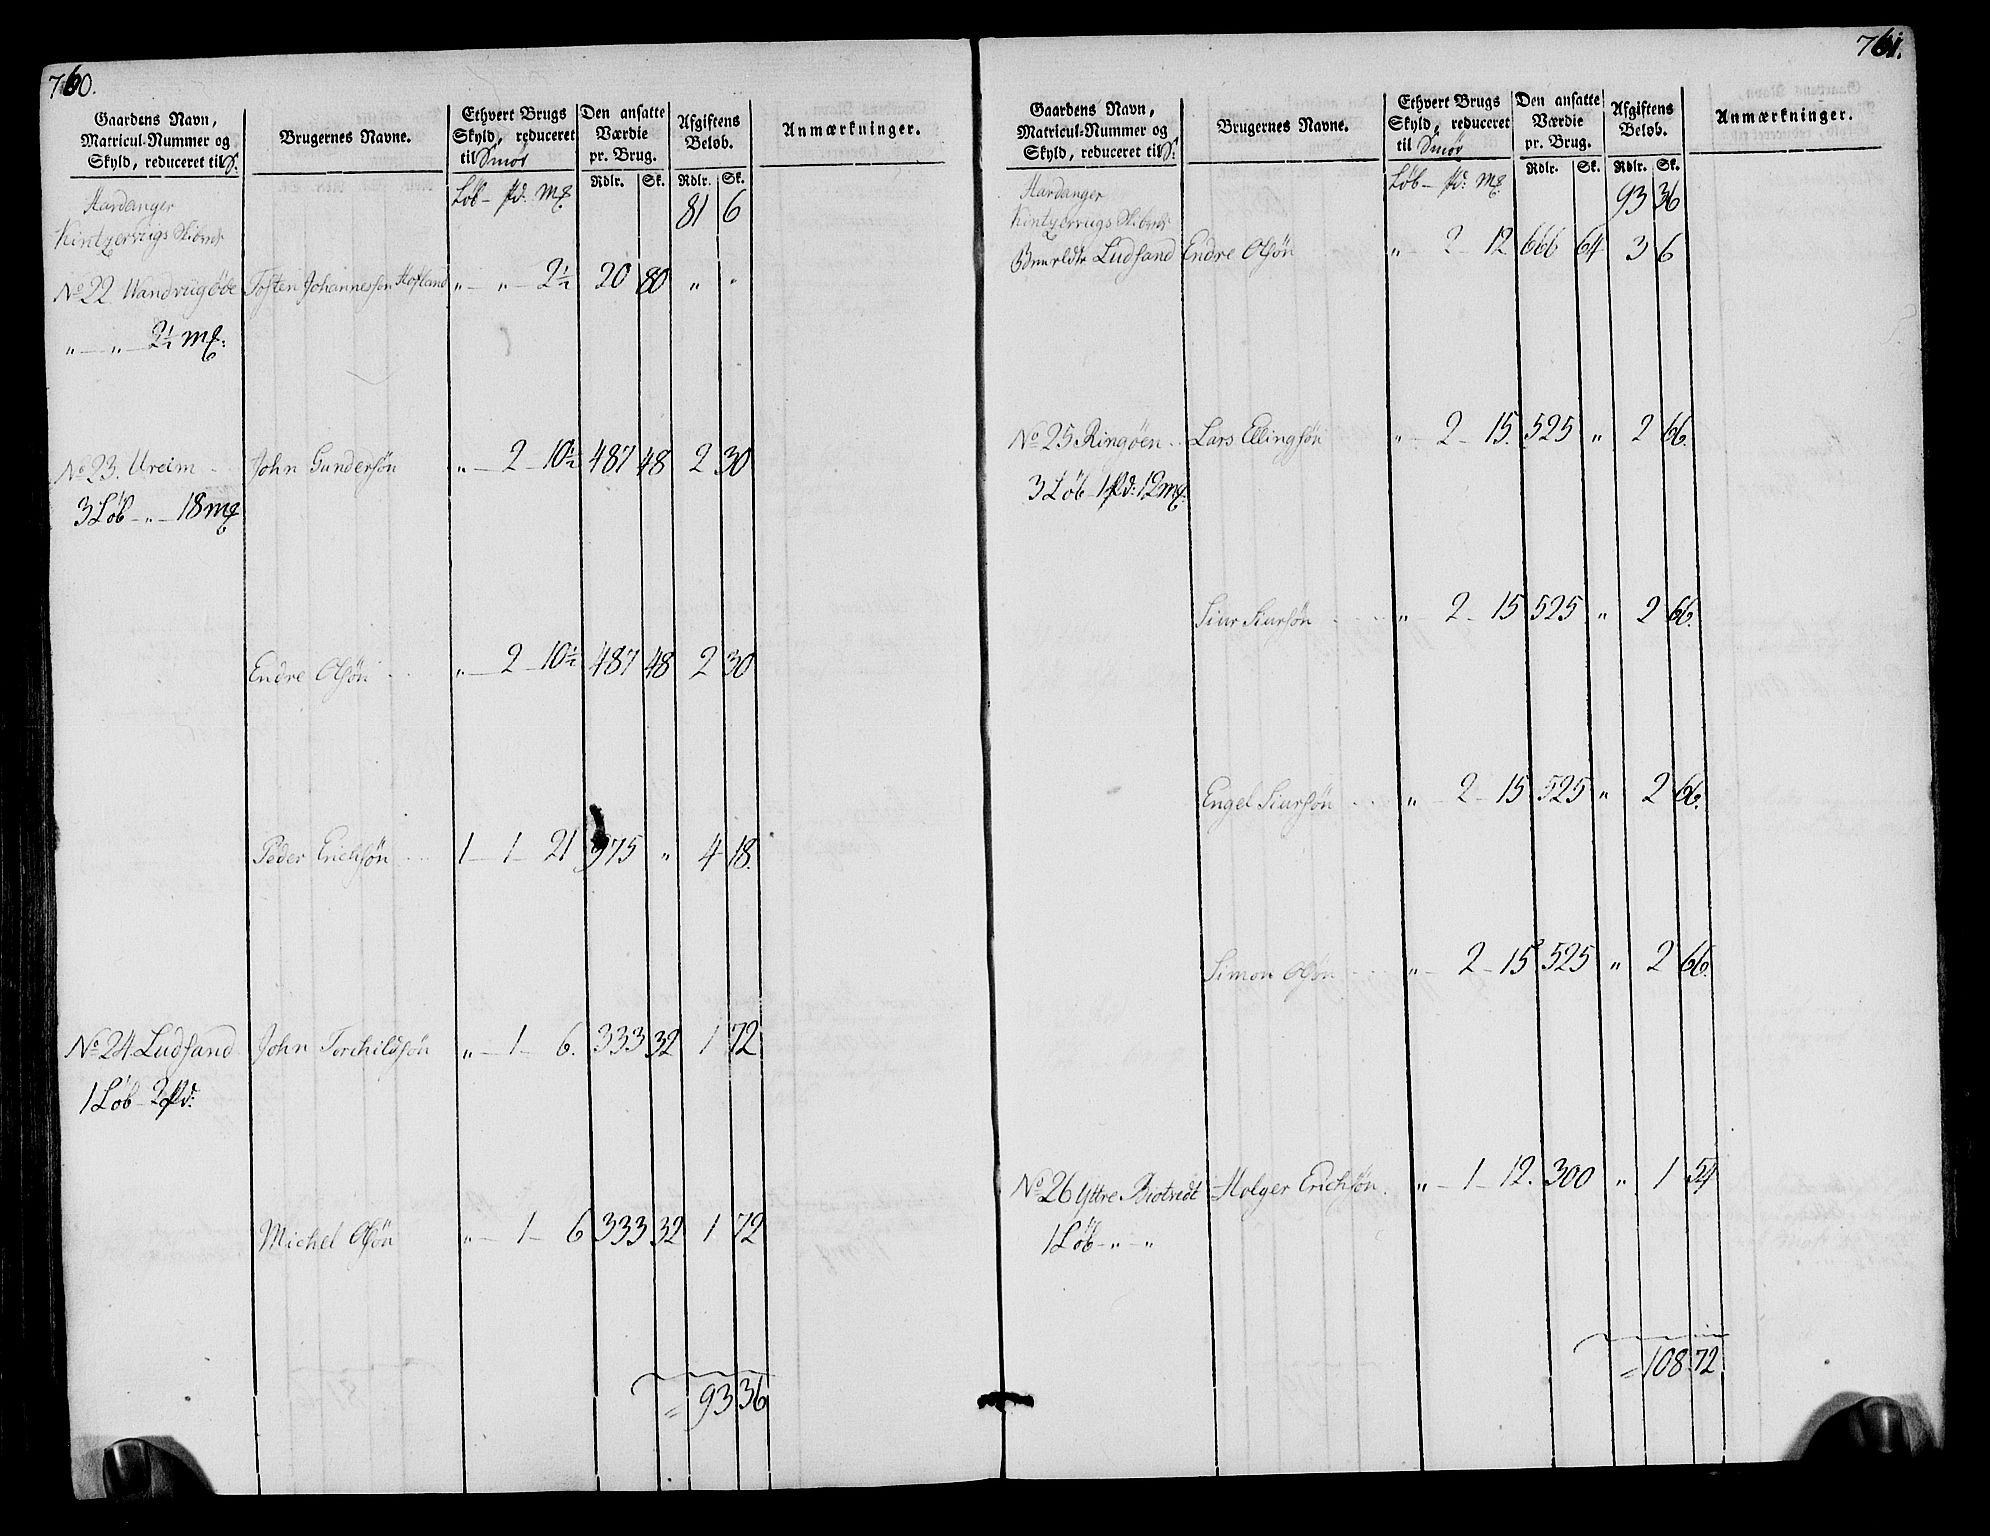 760.
Gaardens Navn, Matricul-Nummer og Skyld, reduceret til S:
Brugernes Navne.
Ethvert Brugs Skyld, reduceret til Smør
Den ansatte Værdie pr. Brug.
Afgiftens Beløb.
Anmærkninger.
Løb - pd: mk
Rdlr. Sk. Rdlr. Sk.
Hardanger 81 6
Kintzervigs Skibrede
No 22 Tosten Johannesson Hofland " - " - 2½ 20 80 " "
" - " - 2½ mk:
No 23. Ureim John Gundersøn " - 2 - 10½ 487 48 2 30
3 Løb - " - 18 mk
Endre Olsøn " - 2 - 10½ 487 48 2 30
Peder Erichsøn 1 - 1 - 21 975 " 4 18.
No 24. Ludsand John Torchildsøn " - 1 - 6. 333 32 1 72
1 Løb - 2 pd:
Michel Olsøn " - 1 - 6 333 32 1 72
= 93 36
761.
Gaardens Navn, Matricul-Nummer og Skyld, reduceret til S:
Brugernes Navne.
Ethvert Brugs Skyld, reduceret til Smør
Den ansatte Værdie pr. Brug.
Afgiftens Beløb.
Anmærkninger.
Løb - pd: mk
Rdlr. Sk. Rdlr. Sk.
Hardanger 93 36
Kintzervigs Skibrede
Ludsand Endre Olsøn " - 2 - 12 666 64 3 6
No 25 Ringøen Lars Ellingsøn " - 2 - 15. 525 " 2 66.
3 Løb - 1 pd: 12 mk:
Siur Siursøn " - 2 - 15 525 " 2 66.
Engel Siursøn " - 2 - 15 525 " 2 66.
Simon Olsøn " - 2 - 15 525 " 2 66.
No 26 Yttre Holger Erichsøn. " - 1 - 12. 300 " 1 54
1 Løb - " - "
= 108 72